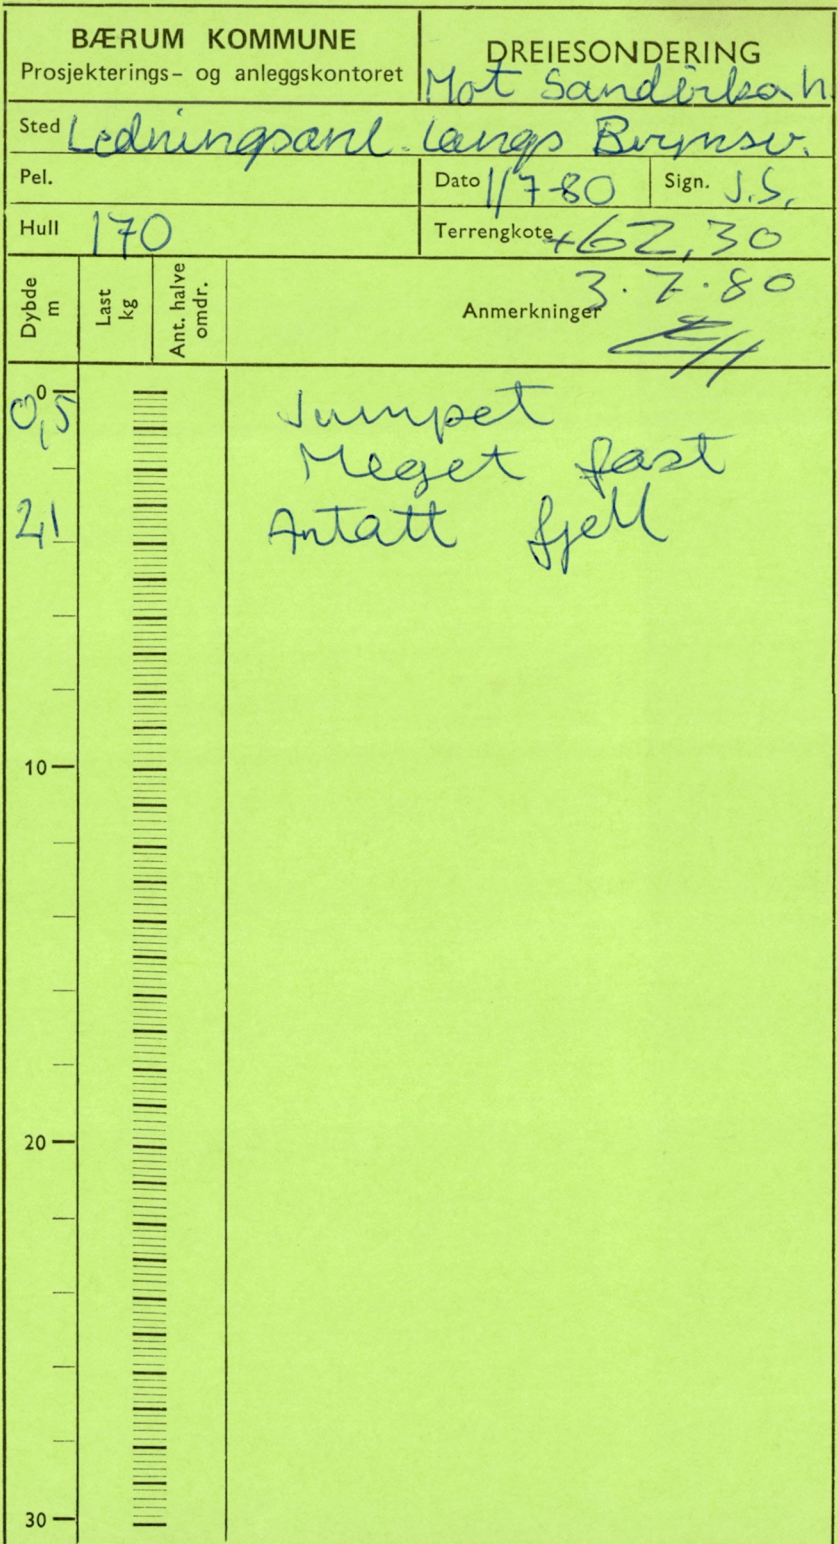 BÆRUM KOMMUNE
Prosjekterings- og anleggskontoret
DREIESONDERING
Mot
Sted Ledningsanl. langs Brynsv.
Pel.
Dato 1/7-80
Sign. J.S.
Hull 170
Terrengkote +62,30
Dybde m
Last kg
Ant. halve omdr.
Anmerkninger
3.7.80
0
0,5 Jumpet
Meget fast
2,1 Antatt fjell
10
20
30